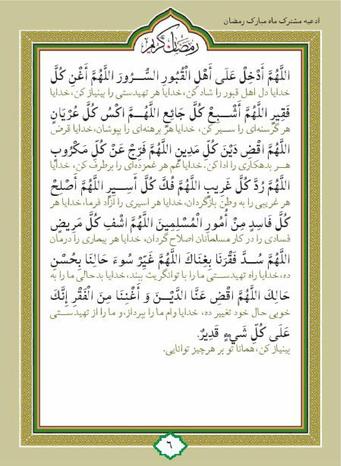 ادعیه مشترک ماه مبارک رمضان
رمضان کریم
اللَّهُمَّ أَدْخِلْ عَلَى أَهْلِ الْقُبُورِ السُّرُورَ اللَّهُمَّ أَغْنِ كُلَّ
خدایا دل اهل قبور را شاد کن، خدایا هر تهیدستی را بینیاز کن، خدایا
فَقِيرٍ اللَّهُمَّ أَشْبِعْ كُلَّ جَائِعٍ اللَّهُمَّ اكْسُ كُلَّ عُرْيَانٍ
هر گرسنه‌ای را سیر کن، خدایا هر برهنه‌ای را بپوشان، خدایا قرض
اللَّهُمَّ اقْضِ دَيْنَ كُلِّ مَدِينٍ اللَّهُمَّ فَرِّجْ عَنْ كُلِّ مَكْرُوبٍ
هر بدهکاری را ادا کن، خدایا غم هر غمزده‌ای را برطرف کن، خدایا
اللَّهُمَّ رُدَّ كُلَّ غَرِيبٍ اللَّهُمَّ فُكَّ كُلَّ أَسِيرٍ اللَّهُمَّ أَصْلِحْ
هر غریبی را به وطن بازگردان، خدایا هر اسیری را آزاد فرما، خدایا هر
كُلَّ فَاسِدٍ مِنْ أُمُورِ الْمُسْلِمِينَ اللَّهُمَّ اشْفِ كُلَّ مَرِيضٍ
فسادی را در کار مسلمانان اصلاح گردان، خدایا هر بیماری را درمان
اللَّهُمَّ سُدَّ فَقْرَنَا بِغِنَاكَ اللَّهُمَّ غَيِّرْ سُوءَ حَالِنَا بِحُسْنِ
ده، خدایا راه تهیدستی ما را با توانگریت ببند، خدایا بدحالی ما را به
حَالِكَ اللَّهُمَّ اقْضِ عَنَّا الدَّيْنَ وَ أَغْنِنَا مِنَ الْفَقْرِ إِنَّكَ
خوبی حال خود تغییر ده، خدایا وام ما را بپرداز، و ما را از تهیدستی
عَلَى كُلِّ شَيْءٍ قَدِيرٌ.
بینیاز کن، همانا تو بر هرچیز توانایی.
۶